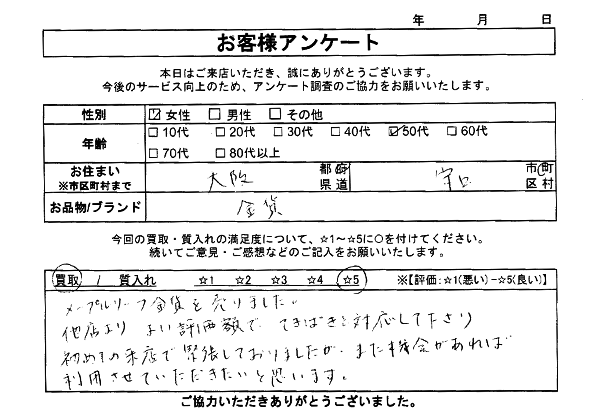 年 月 日
お客様アンケート
本日はご来店いただき、誠にありがとうございます。
今後のサービス向上のため、アンケート調査のご協力をお願いいたします。
性別 ☑女性 □男性 □その他
年齢 □10代 □20代 □30代 □40代 ☑50代 □60代
□70代 □80代以上
お住まい
※市区町村まで 大阪 都府県道 守口 市町区村
お品物/ブランド 金貨
今回の買取・質入れの満足度について、☆1～☆5に○を付けてください。
続いてご意見・ご感想などのご記入をお願いいたします。
買取 / 質入れ ☆1 ☆2 ☆3 ☆4 ☆5 ※【評価:☆1(悪い)-☆5(良い)】
メープルリーフ金貨を売りました。
他店より よい評価額で、てきぱきと対応して下さり
初めての来店で緊張しておりましたが、また機会があれば
利用させていただきたいと思います。
ご協力いただきありがとうございました。